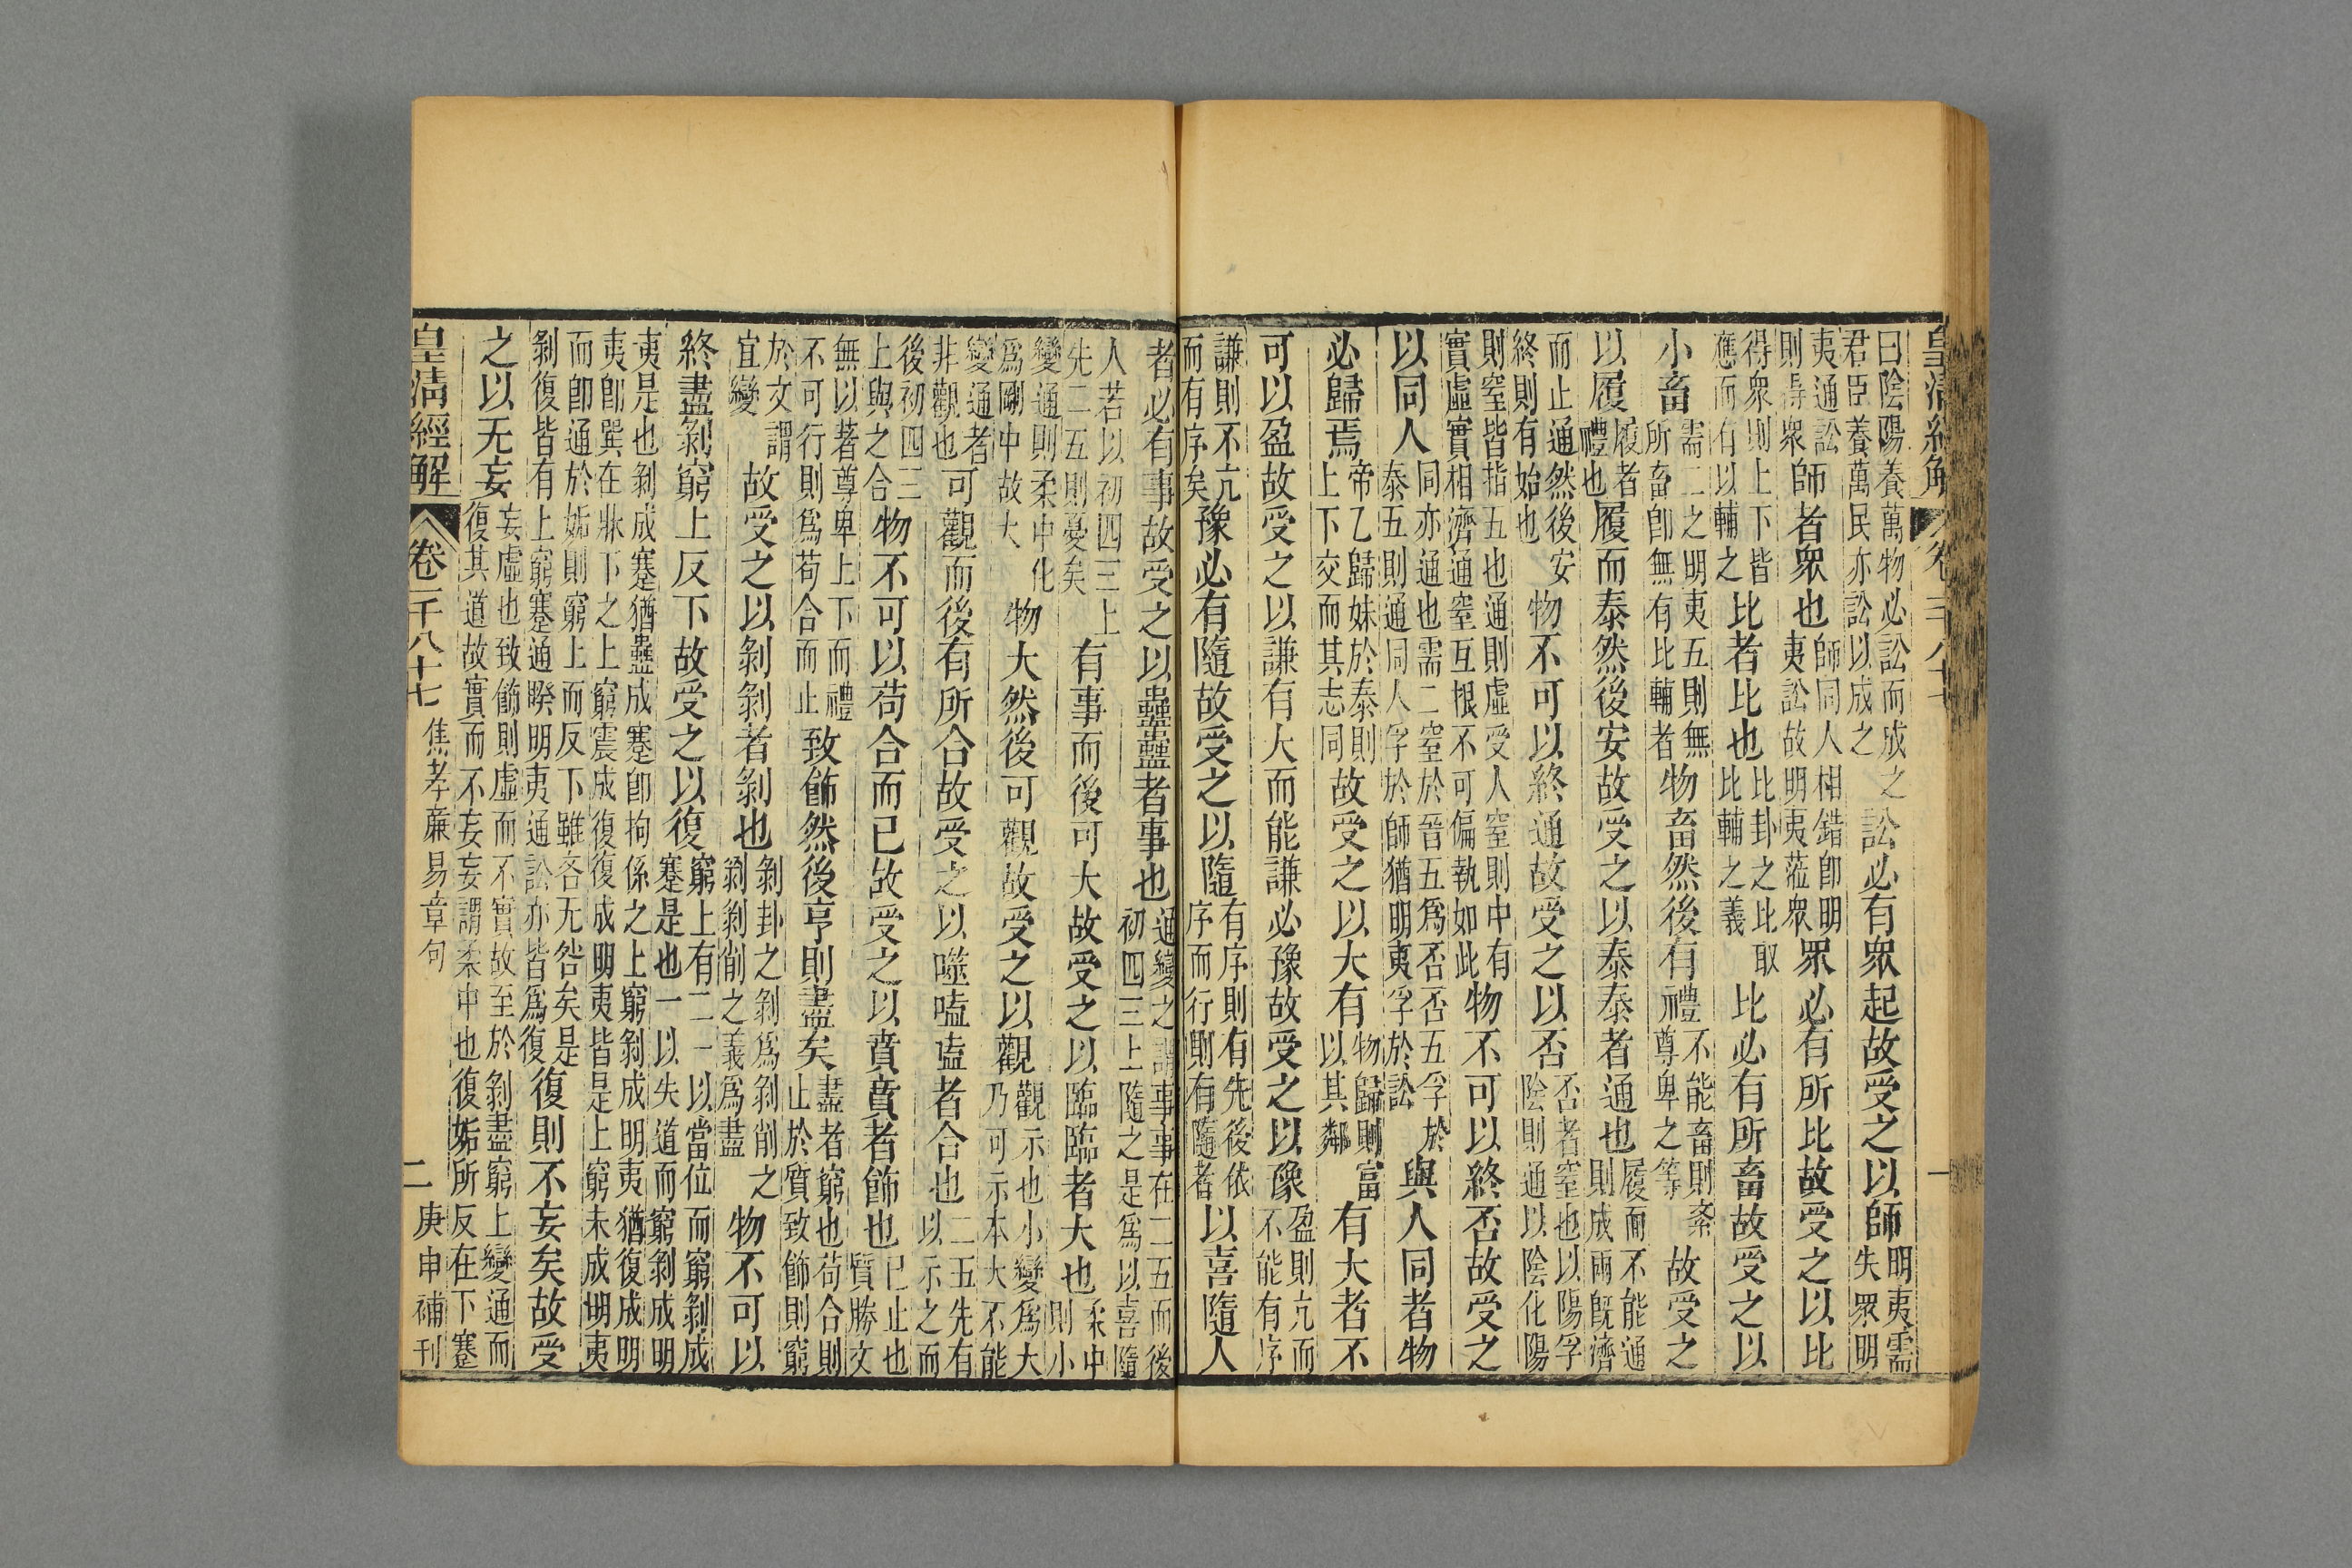 皇清經解 卷一千八十七 一
曰陰陽養萬物必訟而成之
君臣養萬民亦訟以成之
訟必有眾起故受之以師
明夷需
失眾明
夷通訟
則得眾
師者眾也
師同人相錯卽明
夷訟故明夷蒞眾
眾必有所比故受之以比
得眾則上下皆
應而有以輔之
比者比也
比卦之比取
比輔之義
比必有所畜故受之以
小畜
需二之明夷五則無
所畜卽無有比輔者
物畜然後有禮
不能畜則紊
尊卑之等
故受之
以履
履者
禮也
履而泰然後安故受之以泰泰者通也
履而不能通
則成兩旣濟
而止通然後安
終則有始也
物不可以終通故受之以否
否者窒也以陽孚
陰則通以陰化陽
則窒皆指五也通則虛受人窒則中有
實虛實相濟通窒互根不可偏執如此
物不可以終否故受之
以同人
同亦通也需二窒於晉五爲否否五孚於
泰五則通同人孚於師猶明夷孚於訟
與人同者物
必歸焉
帝乙歸妹於泰則
上下交而其志同
故受之以大有
物歸則富
以其鄰
有大者不
可以盈故受之以謙有大而能謙必豫故受之以豫
盈則亢而
不能有序
謙則不亢
而有序矣
豫必有隨故受之以隨
有序則有先後依
序而行則有隨者
以喜隨人
者必有事故受之以蠱蠱者事也
通變之謂事事在二五而後
初四三上隨之是爲以喜隨
人若以初四三上
先二五則憂矣
有事而後可大故受之以臨臨者大也
柔中
則小
變通則柔中化
爲剛中故大
物大然後可觀故受之以觀
觀示也小變爲大
乃可示本大不能
變通者
非觀也
可觀而後有所合故受之以噬嗑嗑者合也
二五先有
以示之而
後初四三
上與之合
物不可以苟合而已故受之以賁賁者飾也
已止也
質勝文
無以著尊卑上下而禮
不可行則爲苟合而止
致飾然後亨則盡矣
盡者窮也苟合則
止於質致飾則窮
於文謂
宜變
故受之以剝剝者剝也
剝卦之剝爲剝削之
剝剝削之義爲盡
物不可以
終盡剝窮上反下故受之以復
窮上有二一以當位而窮剝成
蹇是也一以失道而窮剝成明
夷是也剝成蹇猶蠱成蹇卽拘係之上窮剝成明夷猶復成明
夷卽巽在牀下之上窮震成復復成明夷皆是上窮未成明夷
而卽通於姤則窮上而反下雖吝无咎矣是
剝復皆有上窮蹇通睽明夷通訟亦皆爲復
復則不妄矣故受
之以无妄
妄虛也致飾則虛而不實故至於剝盡窮上變通而
復其道故實而不妄妄謂柔中也復姤所反在下蹇
皇清經解 卷一千八十七 焦孝廉易章句 二 庚申補刊